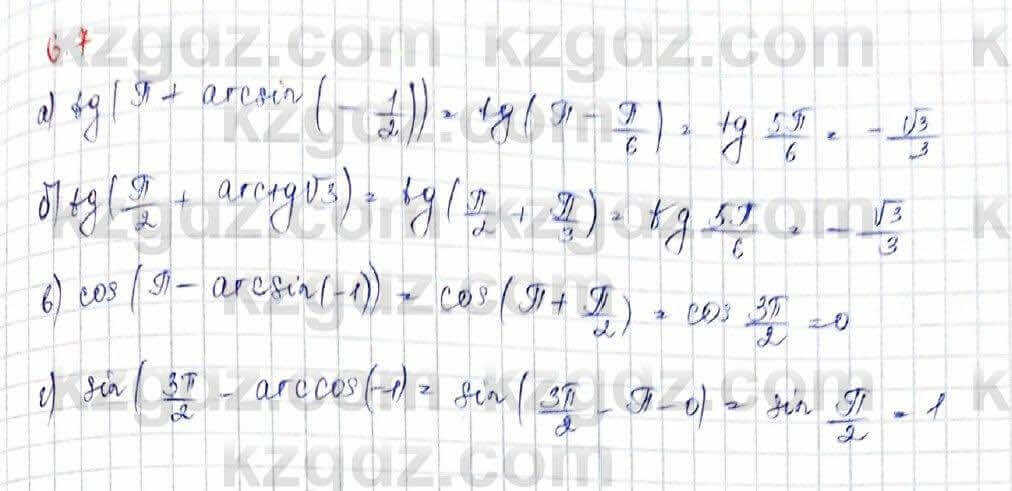 kzgdz.com kzgdz.com
6.7
а) tg(π + arcsin(-1/2)) = tg(π - π/6) = tg 5π/6 = -√3/3
б) tg(π/2 + arctg√3) = tg(π/2 + π/3) = tg 5π/6 = -√3/3
в) cos(π - arcsin(-1)) = cos(π + π/2) = cos 3π/2 = 0
г) sin(3π/2 - arccos(-1) = sin(3π/2 - π - 0) = sin π/2 = 1
kzgdz.com